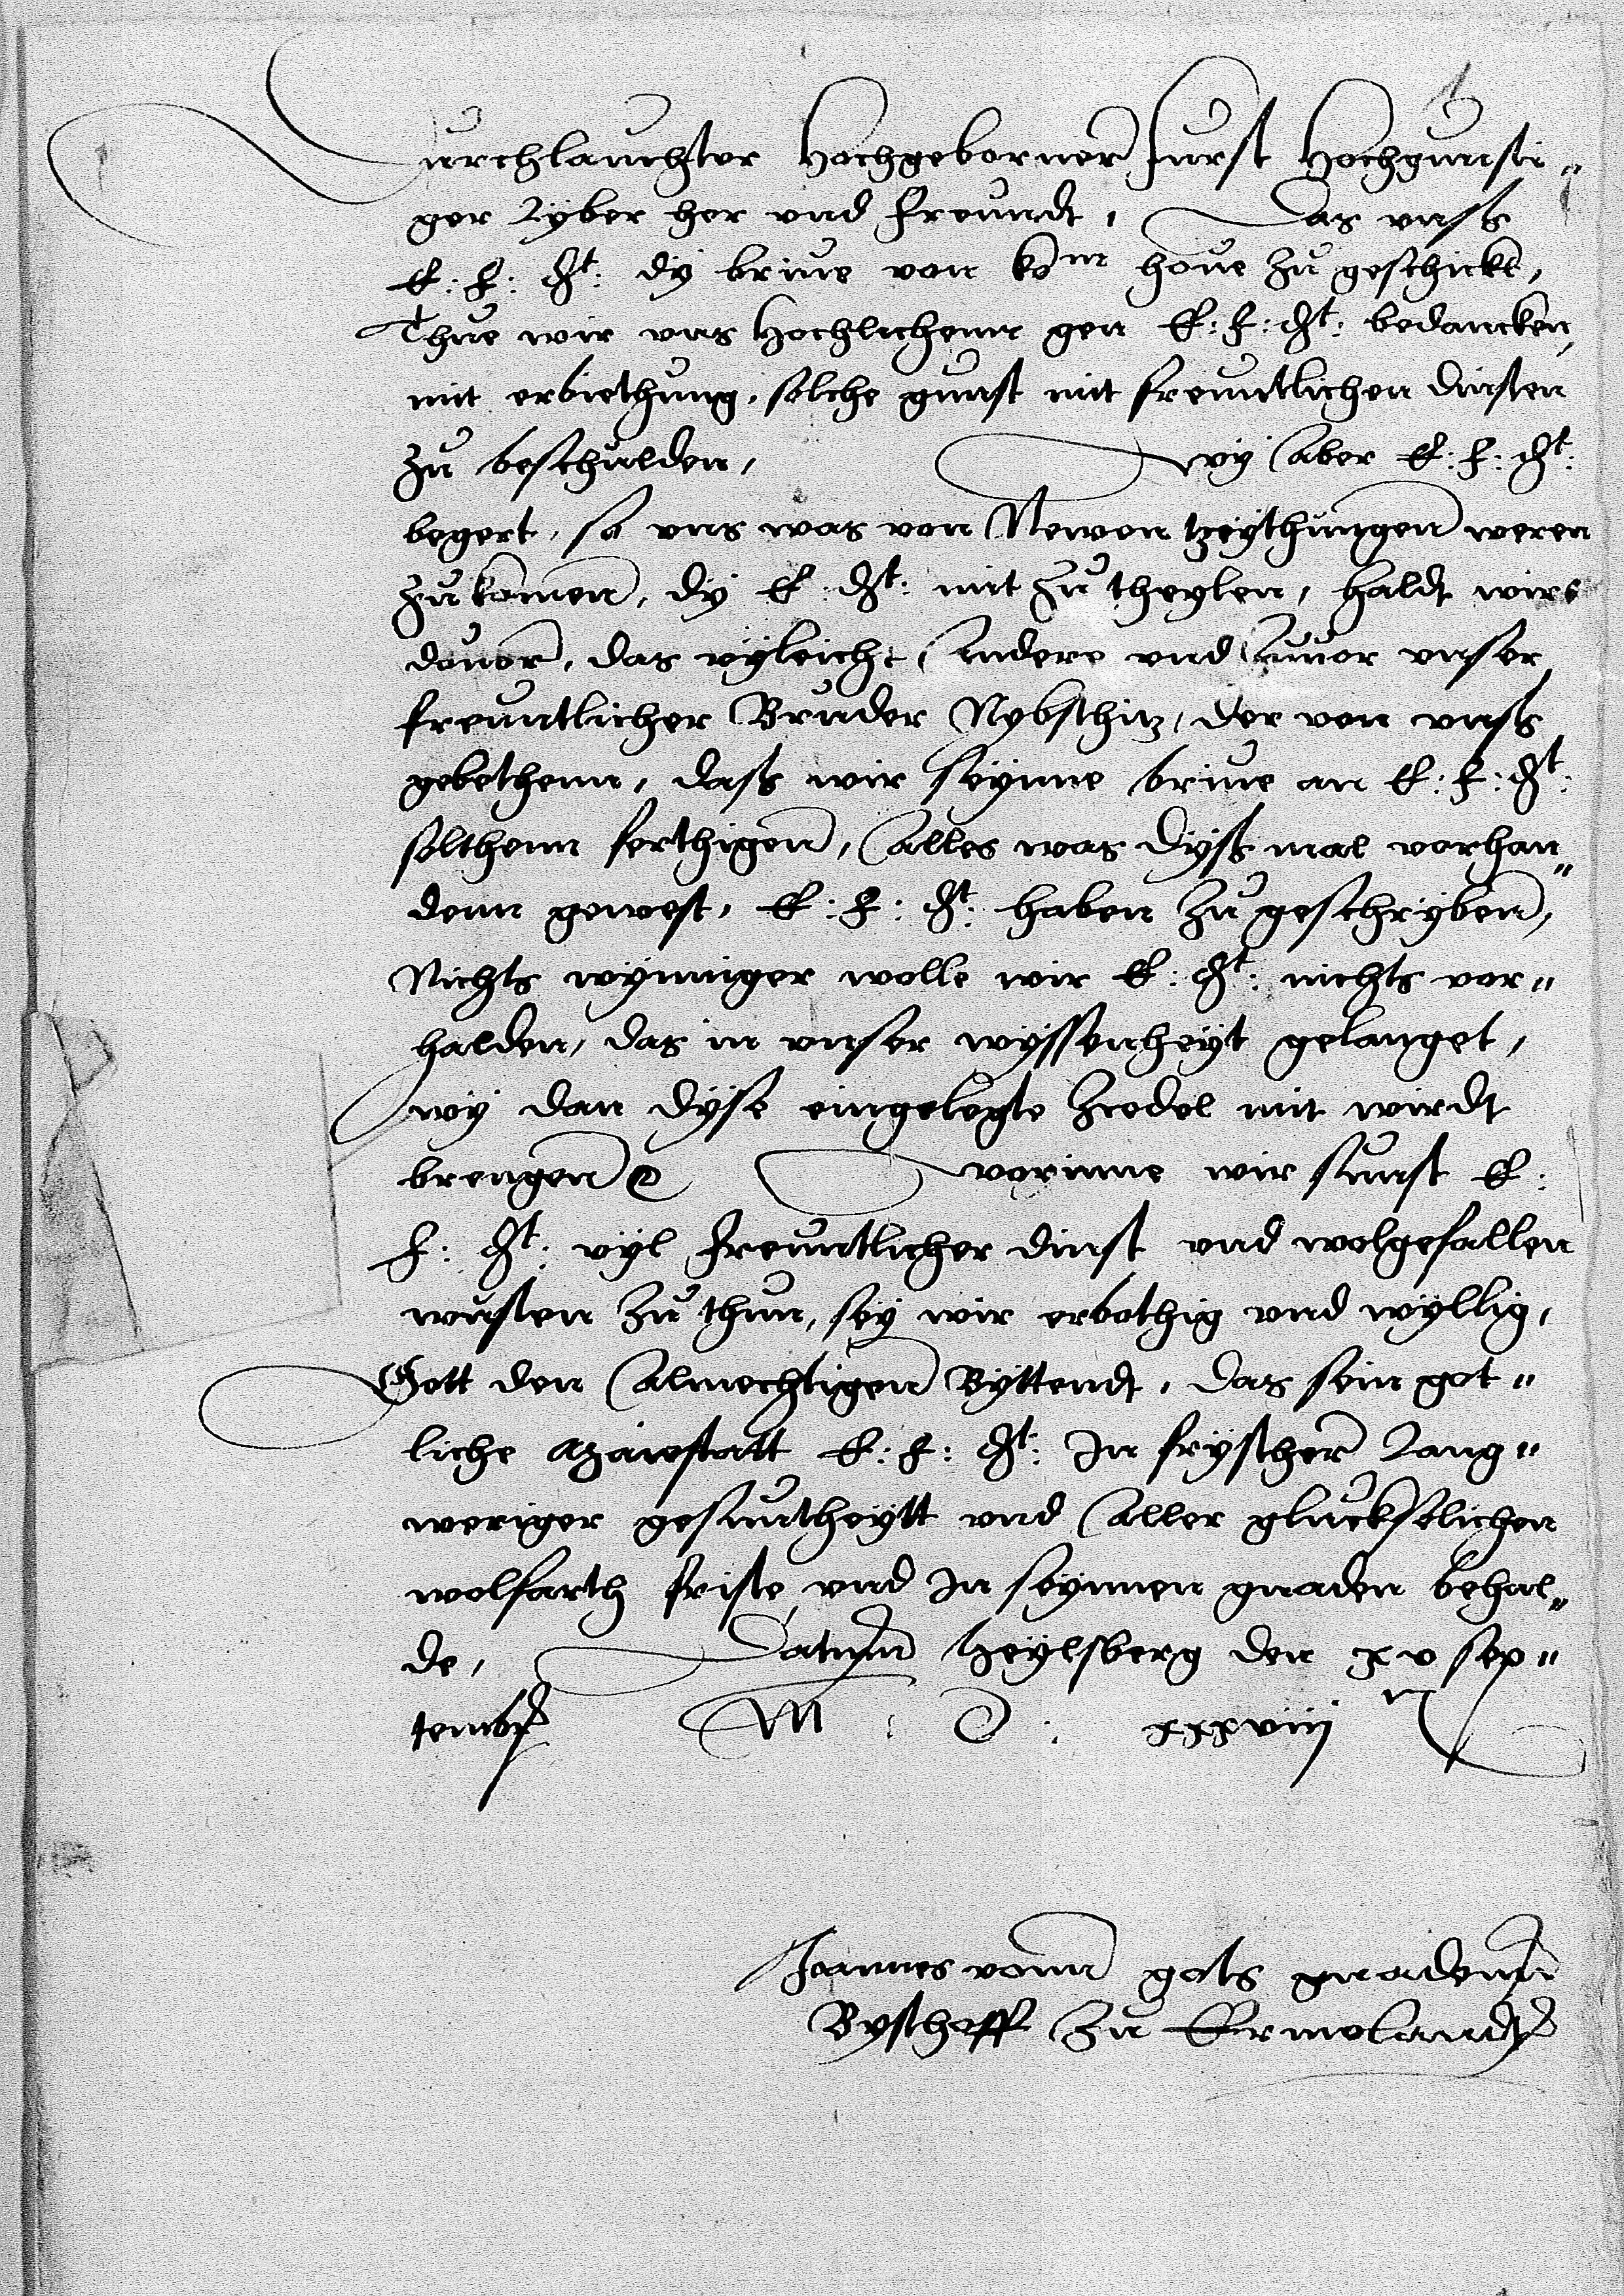 Durchlauchter Hochgeborner furst Hochgunsti„
ger lyber her und freundt, Das unss
E: F: Dt: dy brive von koͤn hove zu geschickt,
Thue wir uns Hochlichenn gen E: F: Dt: bedancken,
mit erbiethung, solche gunst mit freuntlichen dinsten
zu beschulden, wy aber E: F: Dt:
begert, so uns was von Newen tzeythungen weren
zu komen, dy E: Dt: mit zu theylen, haldt wirs
dovor, das vyleicht andere und zuvor unser
freuntlicher Bruder Nybschitz, der von unss
gebethenn, dass wir seynne brive an E: F: Dt:
solthenn ferthigen, alles was dyss mal vorhan„
denn gewest, E: F: Dt: haben zu geschryben,
Nichts wynniger wolle wir E: Dt: nichts vor„
halden, das in unser wyssenheyt gelanget,
wy dan dyse eingelegte zcedel mit wirdt
brengen worinne wir sunst E:
F: Dt: vyl freuntlicher dinst und wolgefallen
wusten zu thun, sey wir erbothig und wyllig,
Gott den almechtigen Byttendt, das sein got„
liche Maiestatt E: F: Dt: In fryscher lang„
weriger gesuntheytt und aller gluckselichen
wolfarth friste und In seynnen gnaden behal„
de, Datum Heylsberg den xv sep„
tembr M: D: xxxviii
Joannes vonn gots gnadenn
Bysschoff zu Ermelandt